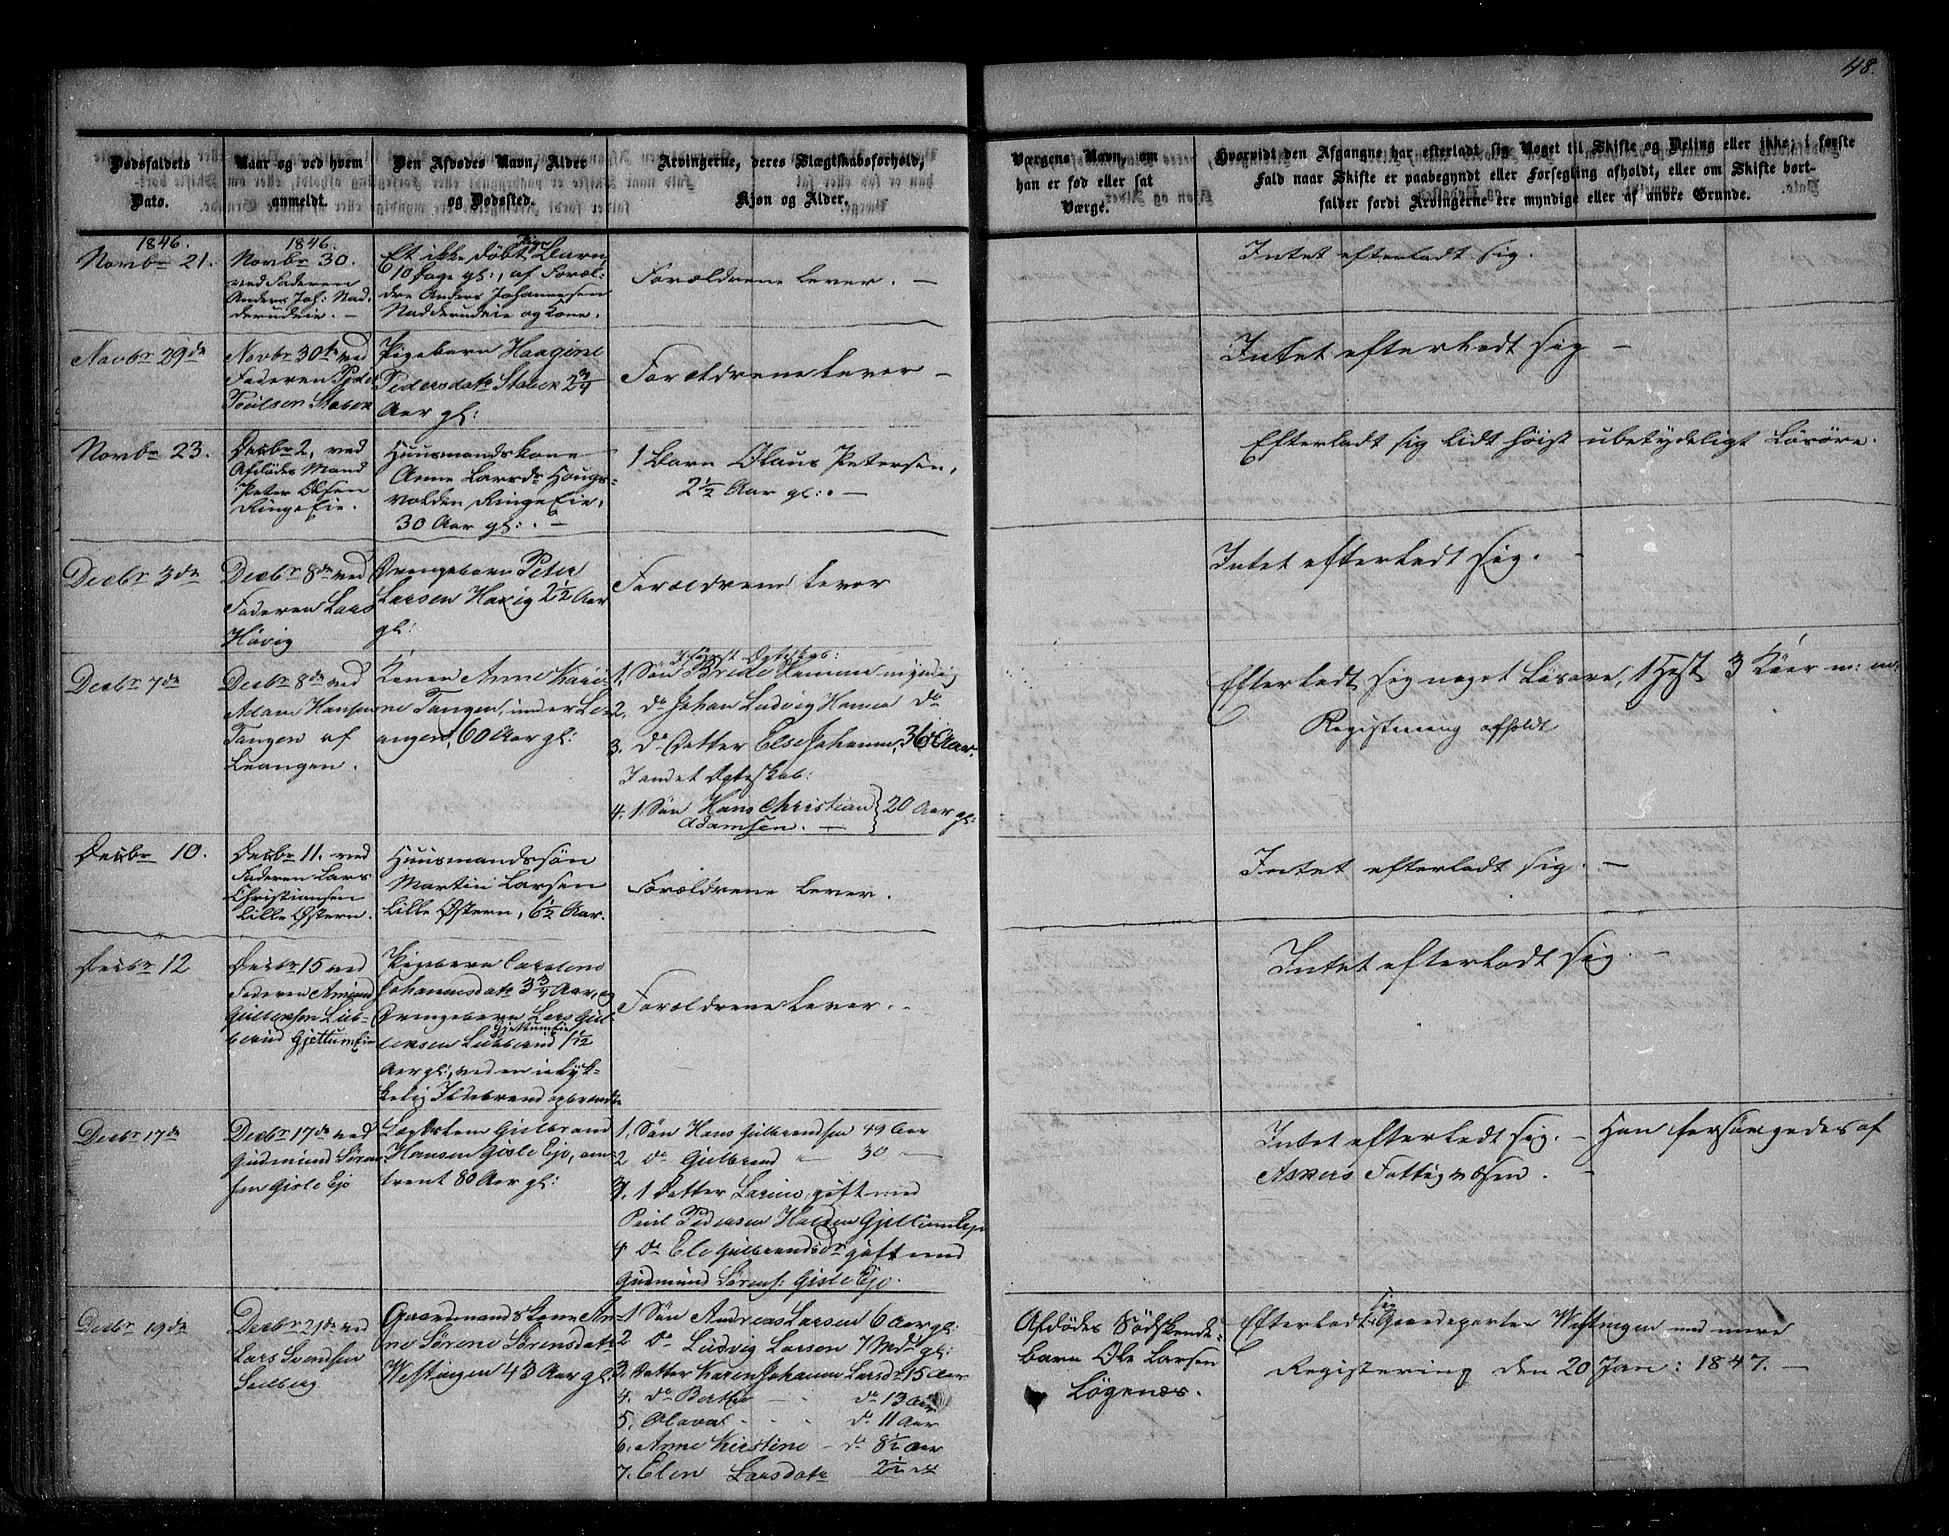 48.
Dødsfaldets
Dato.
Naar og ved hvem
anmeldt.
Den Afdødes Navn, Alder
og Dødssted.
Arvingerne, deres Slægtskabsforhold,
Kjøn og Alder.
Værgens Navn, om
han er fød eller sat
Værge.
Hvorvidt den Afgangne har efterladt sig Noget til Skifte og Deling eller ikke; i første
Fald naar Skifte er paabegyndt eller Forsegling afholdt, eller om Skifte bort-
falder fordi Arvingerne ere myndige eller af andre Grunde.
1846.
Novbr 21.
1846.
Novbr 30.
ved Faderen
Anders Joh: Nad-
derudeie. —
Et ikke døbt Pige Barn,
10 Dage gl:, af Foræl-
dre Anders Johannesen
Nadderudeie og Kone.
Forældrene lever. —
Intet efterladt sig.
Novbr 29de
Novbr 30te ved
Faderen Peder
Poulsen Stabek
Pigebarn Haagine
Pedersdatr Stabek 2 3/4
Aar gl:
Forældrene lever —
Intet efterladt sig —
Novbr 23.
Decbr 2, ved
Afdødes Mand
Peter Olsen
Ringe Eie.
Huusmandskone
Anne Larsdr Hougs-
volden Ringe Eie,
30 Aar gl:. —
1 Barn Olaus Petersen,
2 1/2 Aar gl:. —
Efterladt sig lidt høist ubetydeligt Løsøre.
Decbr 3de
Decbr 8de ved
Faderen Lars
Høvig
Drengebarn Peter
Larsen Høvig 2 1/2 Aar
gl:
Forældrene lever
Intet efterladt sig. —
Decbr 7de
Decbr 8de ved
Adam Hansen
Tangen af
Leangen.
Konen Anne Kari-
ne Tangen, under Le-
angen, 60 Aar gl:
I først Ægteskab:
1. Søn Brede Hansen myndig
2. do Johan Ludvig Hansen do
3. do Datter Else Johanne, 36 Aar.
I andet Ægteskab:
4. 1 Søn Hans Christian } 20 Aar gl:
Adamsen. —
Efterladt sig noget Løsøre, 1 Hest 3 Køer m: m:
Registrering afholdt
Decbr 10.
Decbr 11. ved
Faderen Lars
Christiansen
Lille Østern.
Huusmandssøn
Martin Larsen
Lille Østern, 6 1/2 Aar.
Forældrene lever.
Intet efterladt sig. —
Decbr 12
Decbr 15 ved
Faderen
Gulbransen Lub-
berud Gjettum Eie
Pigebarn Caroline
Johannesdatr 3 3/4 Aar, og
Drengebarn Lars Gul-
Gjettum Eie
bransen Lubberud 1 1/2
Aar gl:, ved en ulyk-
kelig Ildebrand opbrændte
Forældrene lever. —
Intet efterladt sig. —
Decbr 17de
Decbr 17de ved
Gudmund Søren-
sen Gisle Eje
Lægdslem Gulbrand
Hansen Gisle Eje, om-
trent 80 Aar gl:
1. Søn Hans Gulbrandsen 49 Aar
2. do Gulbrand — 30 —
3. 1 Datter Larine, gift med
Poul Pedersen Hølen Gjettum Eje
4 do Ele Gulbrandsdr gift med
Gudmund Sørens: Gisle Eje.
Intet efterladt sig. — Han forsørgedes af
Askers Fattigvæsen. —
Decbr 19de
Decbr 21de ved
Lars Svendsen
Solberg
Gaardmandskone An-
ne Sørene Sørensdatr
Westengen 43 Aar gl:
1 Søn Andreas Larsen 6 Aar gl:
2 do Ludvig Larsen 7 Mdr gl:
3. Datter Karen Johanne Larsdr 15 Aar
4. do Berthe — do 13 Aar
5. Olava — do 11 Aar
6. Anne Kirstine — do 8 1/2 Aar
7. Elen Larsdatr 2 1/2
Afdødes Sødskende-
barn Ole Larsen
Løgenæs.
Efterladt sig Gaardeparten Westengen med mere
Registrering den 20 Jan: 1847. —